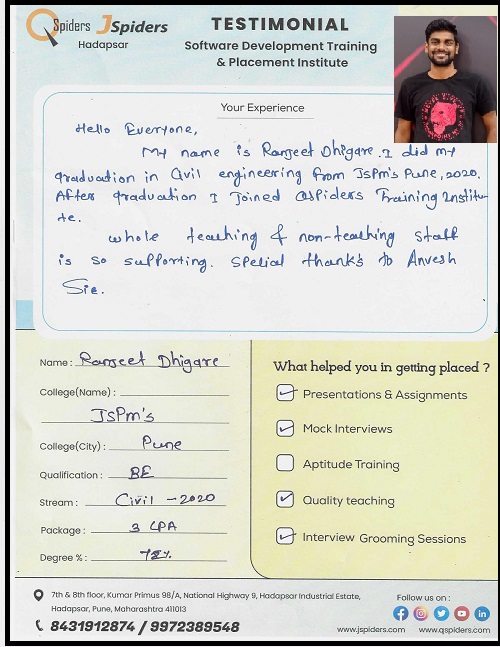 QSpiders JSpiders
Hadapsar
TESTIMONIAL
Software Development Training
& Placement Institute
Your Experience
Hello Everyone,
My name is Ranjeet Dhigare. I did my
graduation in Civil engineering from JSPM's Pune, 2020.
After graduation I Joined QSpiders Training Institu-
te.
whole teaching & non-teaching staff
is so supporting. special thank's to Anvesh
Sir.
Name : Ranjeet Dhigare
College(Name) :
JSPM's
College(City) : Pune
Qualification : BE
Stream : Civil - 2020
Package : 3 LPA
Degree % : 72%
What helped you in getting placed ?
Presentations & Assignments
Mock Interviews
Aptitude Training
Quality teaching
Interview Grooming Sessions
7th & 8th floor, Kumar Primus 98/A, National Highway 9, Hadapsar Industrial Estate,
Hadapsar, Pune, Maharashtra 411013
8431912874 / 9972389548
Follow us on :
www.jspiders.com www.qspiders.com